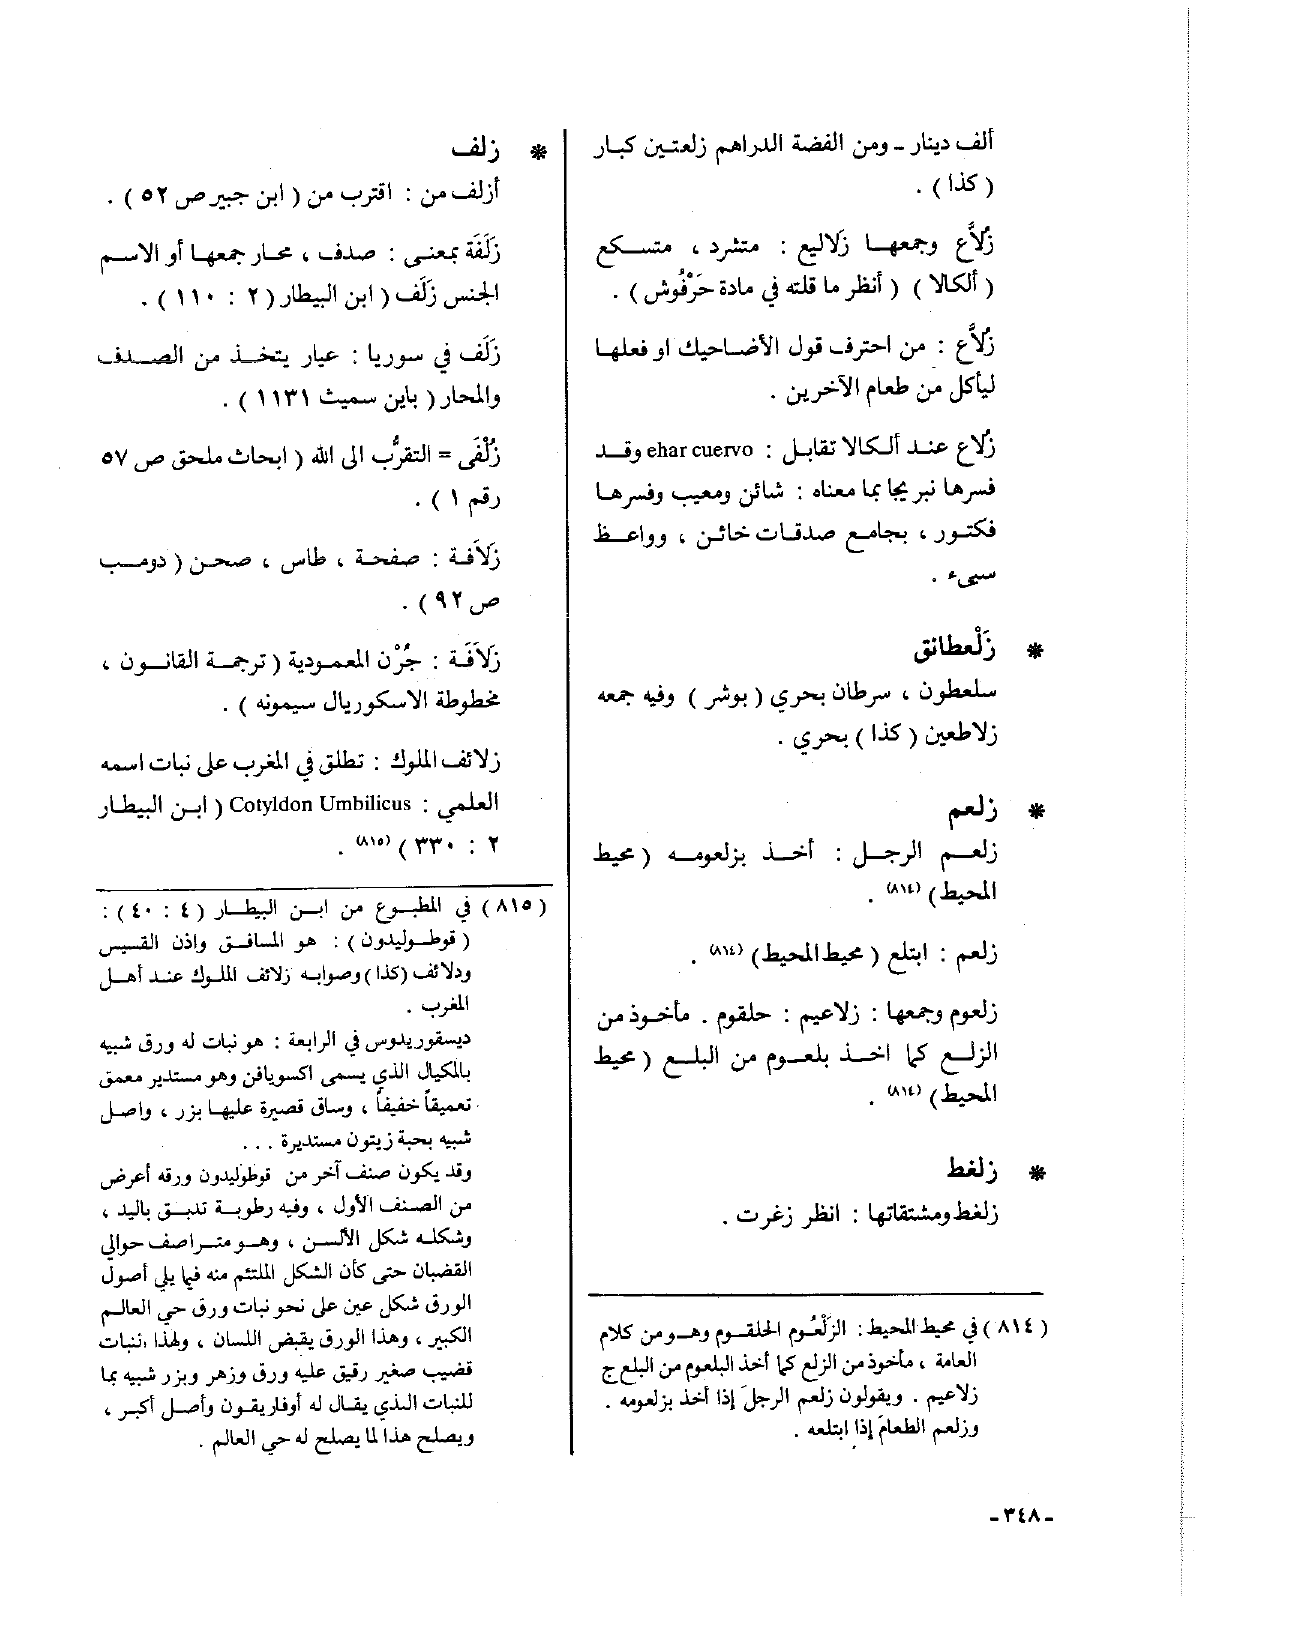 ألف دينار - ومن الفضة الدراهم زلعتين كبار
( كذا ) .
زَلَّاع وجمعها زلاليع : متشرد ، متسكع
( ألكالا ) ( أنظر ما قلته في مادة حَرْفُوش ) .
زَلَّاع : من احترف قول الأضاحيك او فعلها
ليأكل من طعام الآخرين .
زلاع عند ألكالا تقابل : ehar cuervo وقد
فسرها نبريجا بما معناه : شائن ومعيب وفسرها
فكتور ، بجامع صدقات خائن ، وواعظ
سيىء .
* زَلْعطائق
سلعطون ، سرطان بحري ( بوشر ) وفيه جمعه
زلاطعين ( كذا ) بحري .
* زلعم
زلعم الرجل : أخذ بزلعومه ( محيط
المحيط ) (٨١٤) .
زلعم : ابتلع ( محيط المحيط ) (٨١٤) .
زلعوم وجمعها : زلاعيم : حلقوم . مأخوذ من
الزلع كما اخذ بلعوم من البلع ( محيط
المحيط ) (٨١٤) .
* زلغط
زلغط ومشتقاتها : انظر زغرت .
( ٨١٤ ) في محيط المحيط : الزَلْعُوم الحلقوم وهو من كلام
العامة ، مأخوذ من الزلع كما أخذ البلعوم من البلع ج
زلاعيم . ويقولون زلعم الرجلَ إذا أخذ بزلعومه .
وزلعم الطعامَ إذا ابتلعه .
* زلف
أزلف من : اقترب من ( ابن جبير ص ٥٢ ) .
زَلَفَة بمعنى : صدف ، محار جمعها أو الاسم
الجنس زَلَف ( ابن البيطار ( ٢ : ١١٠ ) .
زَلَف في سوريا : عيار يتخذ من الصدف
والمحار ( باين سميث ١١٣١ ) .
زُلْفَى = التقرُّب الى الله ( ابحاث ملحق ص ٥٧
رقم ١ ) .
زلَافة : صفحة ، طاس ، صحن ( دومب
ص ٩٢ ) .
زلاَفَة : جُرْن المعمودية ( ترجمة القانون ،
مخطوطة الاسكوريال سيمونه ) .
زلائف الملوك : تطلق في المغرب على نبات اسمه
العلمي : Cotyldon Umbilicus ( ابن البيطار
٢ : ٣٣٠ ) (٨١٥) .
( ٨١٥ ) في المطبوع من ابن البيطار ( ٤ : ٤٠ ) :
( قوطوليدون ) : هو المسافق واذن القسيس
ودلائف (كذا) وصوابه زلائف الملوك عند أهل
المغرب .
ديسقوريدوس في الرابعة : هو نبات له ورق شبيه
بالمكيال الذي يسمى اكسويافن وهو مستدير معمق
تعميقاً خفيفاً ، وساق قصيرة عليها بزر ، واصل
شبيه بحبة زيتون مستديرة ...
وقد يكون صنف آخر من قوطوليدون ورقه أعرض
من الصنف الأول ، وفيه رطوبة تدبق باليد ،
وشكله شكل الألسن ، وهو متراصف حوالي
القضبان حتى كأن الشكل الملتئم منه فيما يلي أصول
الورق شكل عين على نحو نبات ورق حي العالم
الكبير ، وهذا الورق يقبض اللسان ، ولهذا النبات
قضيب صغير رقيق عليه ورق وزهر وبزر شبيه بما
للنبات الذي يقال له أوفاريقون وأصل أكبر ،
ويصلح هذا لما يصلح له حي العالم .
-٣٤٨-